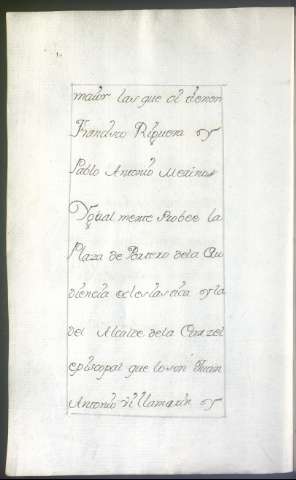 maior las que oi tienen
Francisco Riquera y
Pablo Antonio Merino
Ygual mente Probee la
Plaza de Portero dela Au
diencia eclesiastica y la
del Alcaide dela Carzel
episcopal que lo son Juan
Antonio Villamarin y